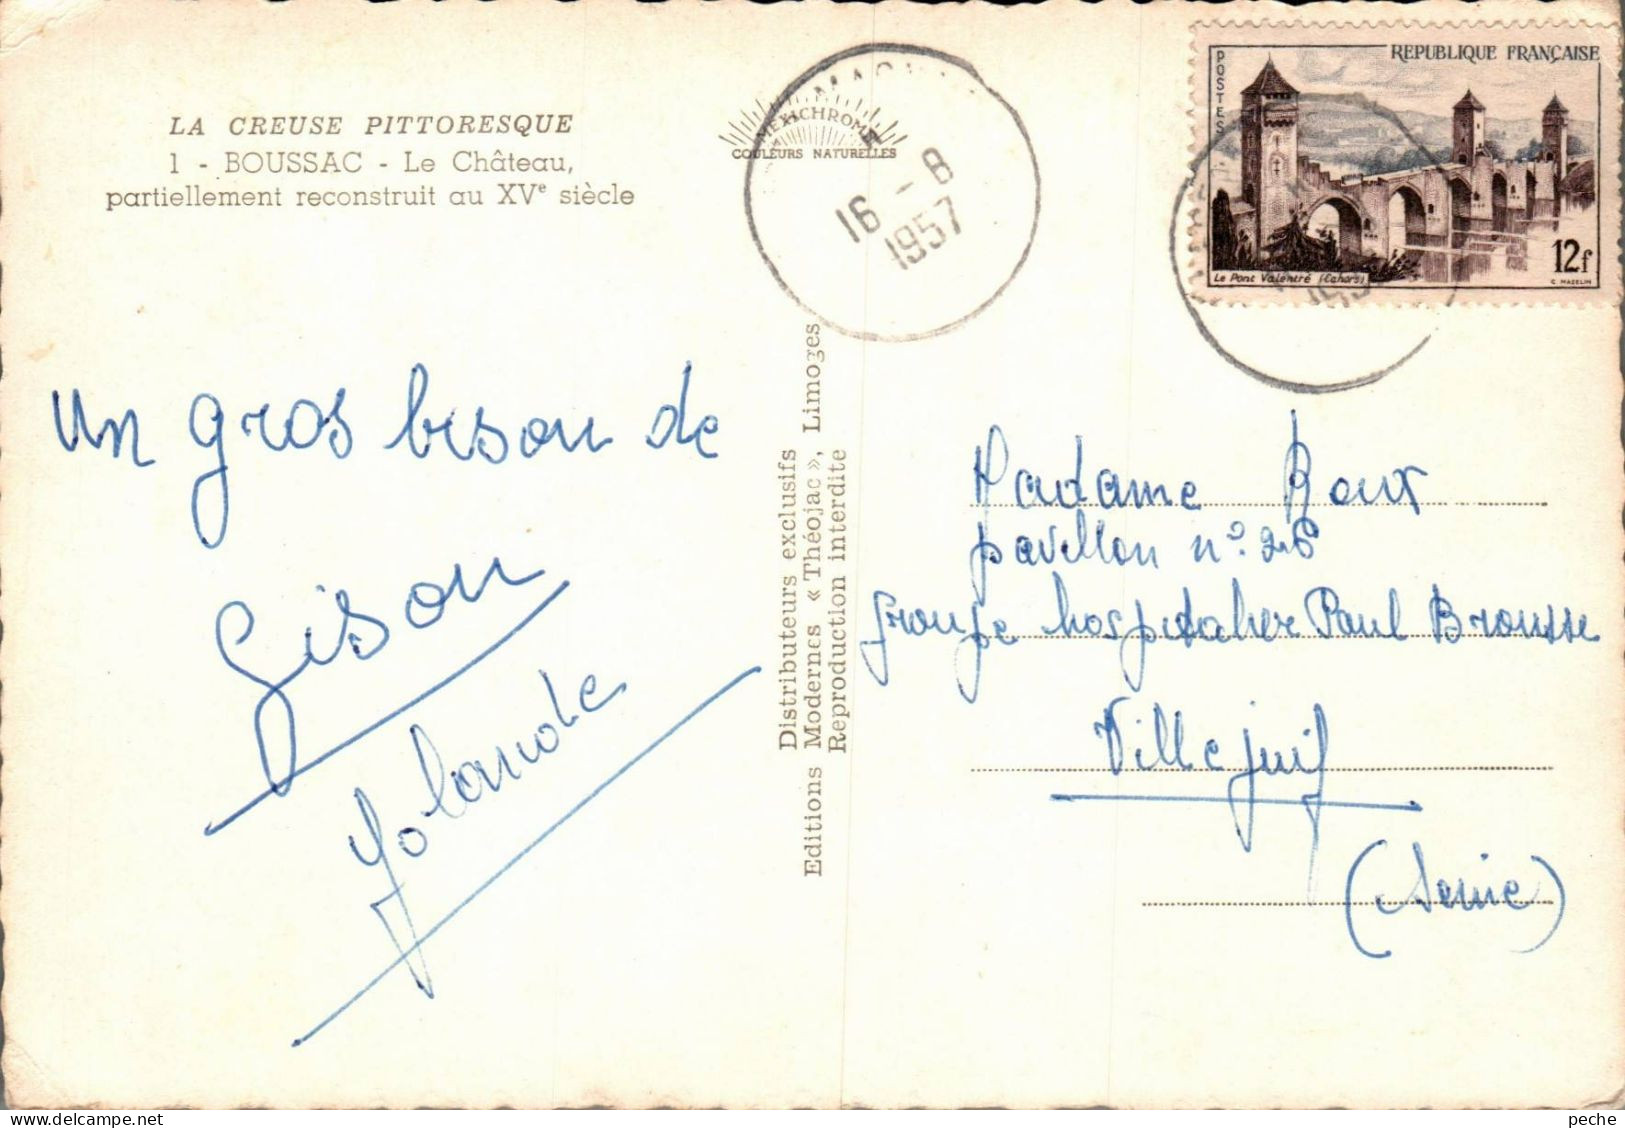 LA CREUSE PITTORESQUE
1 - BOUSSAC - Le Château,
partiellement reconstruit au XVe siècle
MEXICHROME
COULEURS NATURELLES
16 - 8
1957
POSTES
REPUBLIQUE FRANÇAISE
Le Pont Valentré (Cahors)
12f
C. MAZELIN
un gros bison de
Gison
Yolande
Distributeurs exclusifs
Editions Modernes « Théojac », Limoges
Reproduction interdite
Madame Roux
pavillon n° 26
groupe hospitalier Paul Brousse
Villejuif
(Seine)
peche